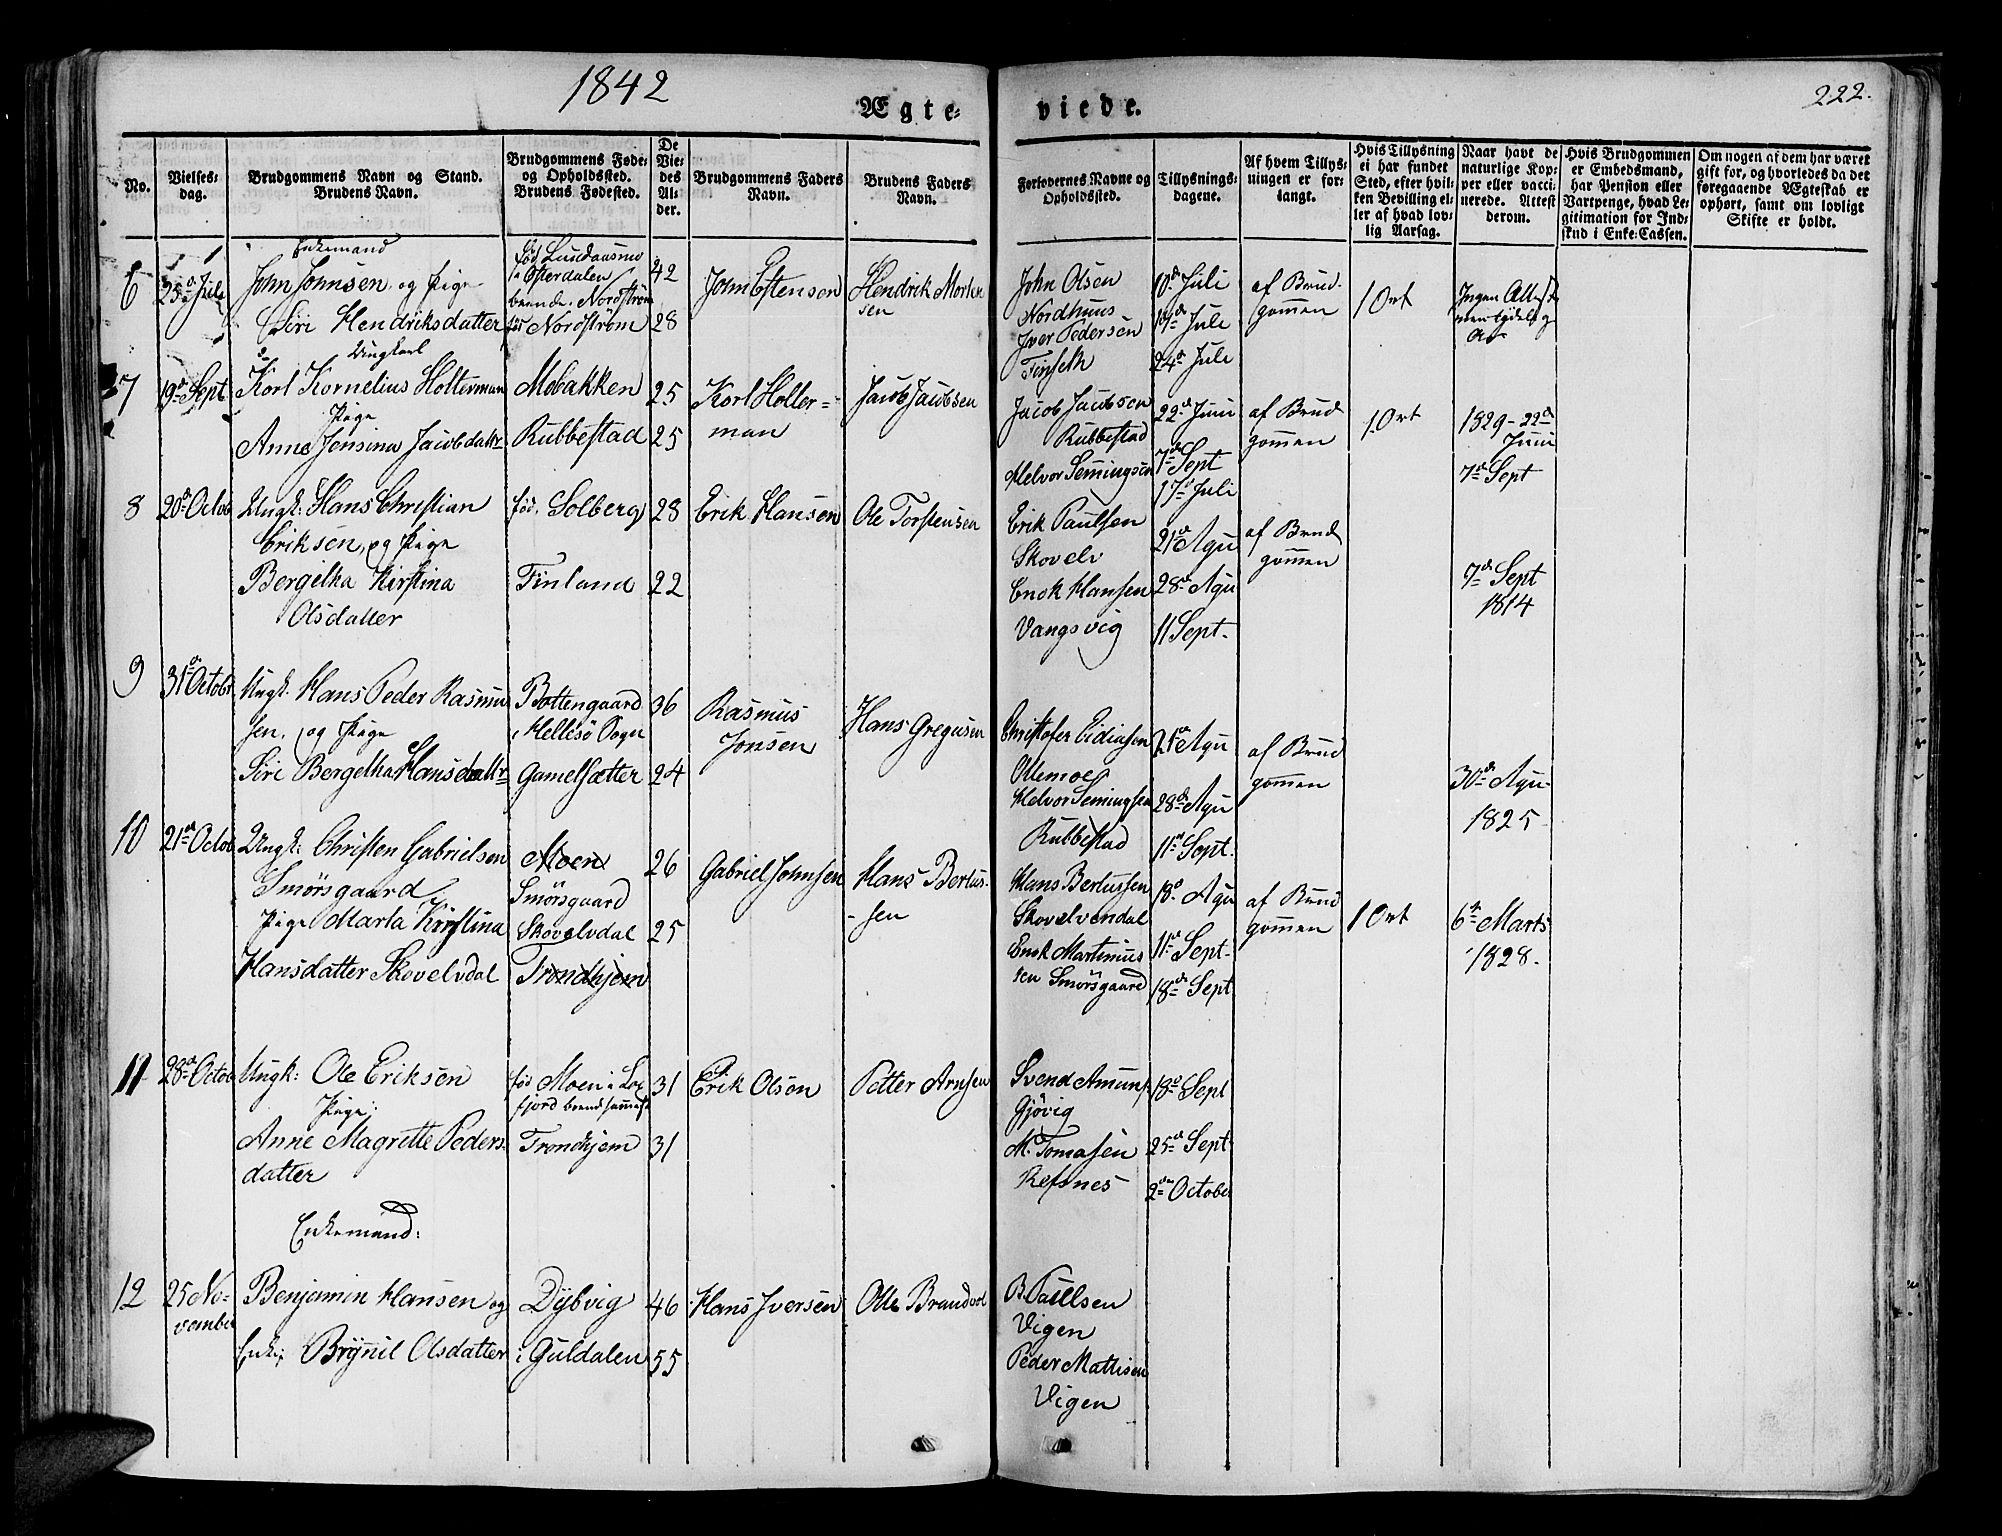 1842
222.
Ægte-
viede.
No.
Vielses-
dag.
Brudgommens Navn og Stand.
Brudens Navn.
Brudgommens Føde-
og Opholdssted.
Brudens Fødested.
De
Vie-
des
Al-
der.
Brudgommens Faders
Navn.
Brudens Faders
Navn.
Forlovernes Navne og
Opholdssted.
Tillysnings-
dagene.
Af hvem Tillys-
ningen er for-
langt.
Hvis Tillysning
ei har fundet
Sted, efter hvil-
ken Bevilling el-
ler af hvad lov-
lig Aarsag.
Naar havt de
naturlige Kop-
per eller vacci-
nerede. Attest
derom.
Hvis Brudgommen
er Embedsmand,
har Pension eller
Vartpenge, hvad Le-
gitimation for Ind-
skud i Enke-Cassen.
Om nogen af dem har været
gift før, og hvorledes da det
foregaaende Ægteskab er
ophørt, samt om lovligt
Skifte er holdt.
6
25 Juli
Enkemand
John Johnsen og Pige
Siri Hendriksdatter
Østerdalen
boende Nordstrøm
Nordstrøm
42
28
John Estensen
Hendrik Morten
sen
John Olsen
Nordhuus
Iver Pedersen
Finseth
10de Juli
17de Juli
24de Juli
af Brud-
gommen
1 Ort
Ingen Attest
7
19de Sept
Ungkarl
Karl Kornelius Holterman
Pige
Anne Jensina Jacobdatr
Mobakken
Rubbestad
25
25
Karl Holler=
man
Jacob Jacobsen
Jacob Jacobsen
Rubbestad
Helvor Semingsen
22de Juni
7de Sept
17de Juli
af Brud
gommen
1 Ort
1829 - 22de
Juni
7de Sept
8
20de Octob
Ungk: Hans Christian
Eriksen, og Pige
Bergitha Kirstina
Olsdatter
fød. Solberg
Finland
28
22
Erik Hansen
Ole Torstensen
Erik Paulsen
Skovelv
Enok Hansen
Vangsvig
21de Agu
28de Agu
11 Sept.
af Brud
gommen
7de Sept
1814
9
31de Octobr
Ungk. Hans Peder Rasmu
sen. og Pige
Siri Bergetha Hansdattr
Bottengaard
i Hellesö Sogn
Gamelsætter
36
24
Rasmus
Jonsen
Hans Gregusen
Christofer Eidinsen
Olemoe
Helvor Semingsen
Rubbestad
21de Agu
28de Agu
11te Sept.
af Brud
gommen
30de Agu
1825
10
21de Octob
Ungk: Christen Gabrielsen
Smörsgaard
Pige Marta Kirstina
Hansdatter Skovelvdal
Moen
Smörsgaard
Skovelvdal
Trondhjem
26
25
Gabriel Johnsen
Hans Bertus-
-sen
Hans Bertussen
Skovelvendal
Enok Martinius
sen Smörsgaard
18de Agu
11te Sept.
18de Sept
af Brud
gommen
1 Ort
6te Marts
1828.
11
28de Octob
Ungk: Ole Eriksen
Pige:
Anne Magrette Peders
datter
fød Moen i Lax
fjord boend sammest
Trondhjem
31
31
Erik Olson
Petter Arnsen
Svend Amuns
Gjövig
M. Tomasen
Refsnes
18de Sept
25de Sept
2den October
12
25 No-
vember
Enkemand:
Benjamin Hansen og
Enke: Brynil Olsdatter
Dybvig
i Guldalen
46
55
Hans Iversen
Olle Brandvol
B. Paullsen
Vigen
Peder Mathisen
Vigen